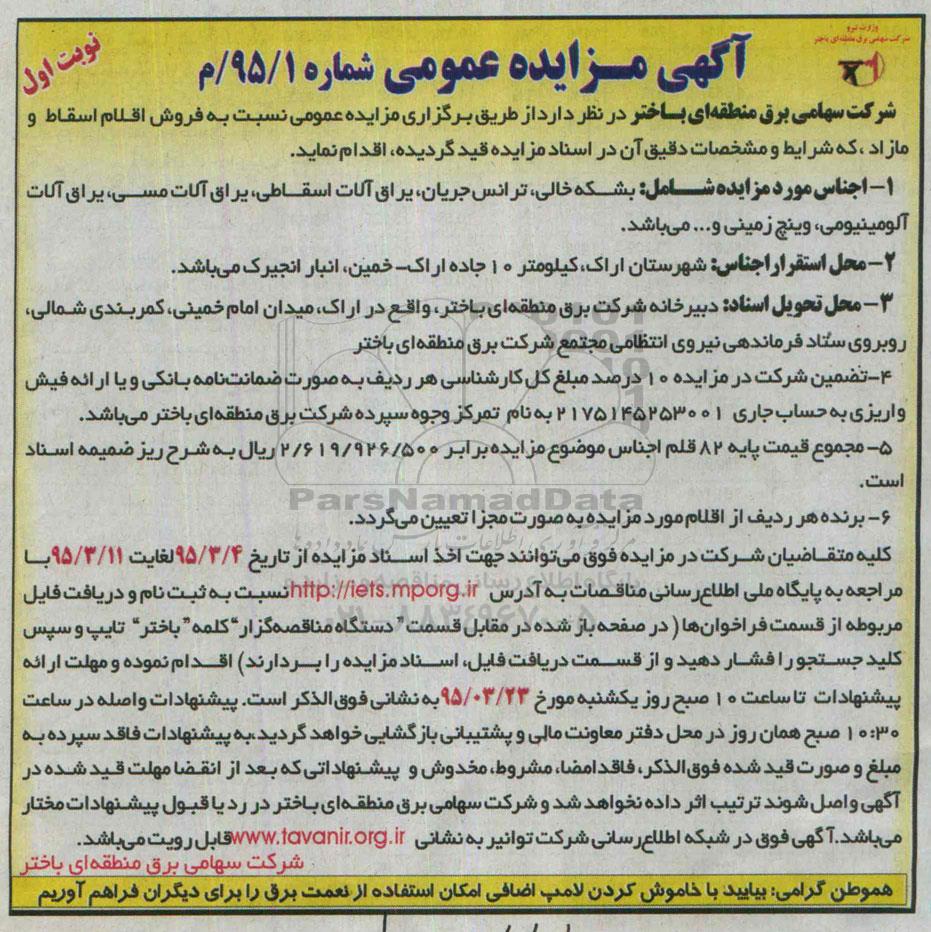 وزارت نیرو
شرکت سهامی برق منطقه‌ای باختر
نوبت اول
آگهی مزایده عمومی شماره ۹۵/۱/م
شرکت سهامی برق منطقه‌ای باختر در نظر دارد از طریق برگزاری مزایده عمومی نسبت به فروش اقلام اسقاط و
مازاد ، که شرایط و مشخصات دقیق آن در اسناد مزایده قید گردیده، اقدام نماید.
۱- اجناس مورد مزایده شامل: بشکه خالی، ترانس جریان، یراق آلات اسقاطی، یراق آلات مسی، یراق آلات
آلومینیومی، وینچ زمینی و... می‌باشد.
۲- محل استقرار اجناس: شهرستان اراک، کیلومتر ۱۰ جاده اراک- خمین، انبار انجیرک می‌باشد.
۳- محل تحویل اسناد: دبیرخانه شرکت برق منطقه‌ای باختر، واقع در اراک، میدان امام خمینی، کمربندی شمالی،
روبروی ستاد فرماندهی نیروی انتظامی مجتمع شرکت برق منطقه‌ای باختر
۴-تضمین شرکت در مزایده ۱۰ درصد مبلغ کل کارشناسی هر ردیف به صورت ضمانت‌نامه بانکی و یا ارائه فیش
واریزی به حساب جاری ۲۱۷۵۱۴۵۲۵۳۰۰۱ به نام تمرکز وجوه سپرده شرکت برق منطقه‌ای باختر می‌باشد.
۵- مجموع قیمت پایه ۸۲ قلم اجناس موضوع مزایده برابر ۲/۶۱۹/۹۲۶/۵۰۰ ریال به شرح ریز ضمیمه اسناد
است.
ParsNamadData
۶- برنده هر ردیف از اقلام مورد مزایده به صورت مجزا تعیین می‌گردد.
کلیه متقاضیان شرکت در مزایده فوق می‌توانند جهت اخذ اسناد مزایده از تاریخ ۹۵/۳/۴ لغایت ۹۵/۳/۱۱ با
مراجعه به پایگاه ملی اطلاع‌رسانی مناقصات به آدرس http://iets.mporg.ir نسبت به ثبت نام و دریافت فایل
مربوطه از قسمت فراخوان‌ها ( در صفحه باز شده در مقابل قسمت "دستگاه مناقصه‌گزار" کلمه "باختر" تایپ و سپس
کلید جستجو را فشار دهید و از قسمت دریافت فایل، اسناد مزایده را بردارند) اقدام نموده و مهلت ارائه
پیشنهادات تا ساعت ۱۰ صبح روز یکشنبه مورخ ۹۵/۰۳/۲۳ به نشانی فوق‌الذکر است. پیشنهادات واصله در ساعت
۱۰:۳۰ صبح همان روز در محل دفتر معاونت مالی و پشتیبانی بازگشایی خواهد گردید.به پیشنهادات فاقد سپرده به
مبلغ و صورت قید شده فوق‌الذکر، فاقد امضا، مشروط، مخدوش و پیشنهاداتی که بعد از انقضا مهلت قید شده در
آگهی واصل شوند ترتیب اثر داده نخواهد شد و شرکت سهامی برق منطقه‌ای باختر در رد یا قبول پیشنهادات مختار
می‌باشد.آگهی فوق در شبکه اطلاع‌رسانی شرکت توانیر به نشانی www.tavanir.org.ir قابل رویت می‌باشد.
شرکت سهامی برق منطقه‌ای باختر
هموطن گرامی: بیایید با خاموش کردن لامپ اضافی امکان استفاده از نعمت برق را برای دیگران فراهم آوریم